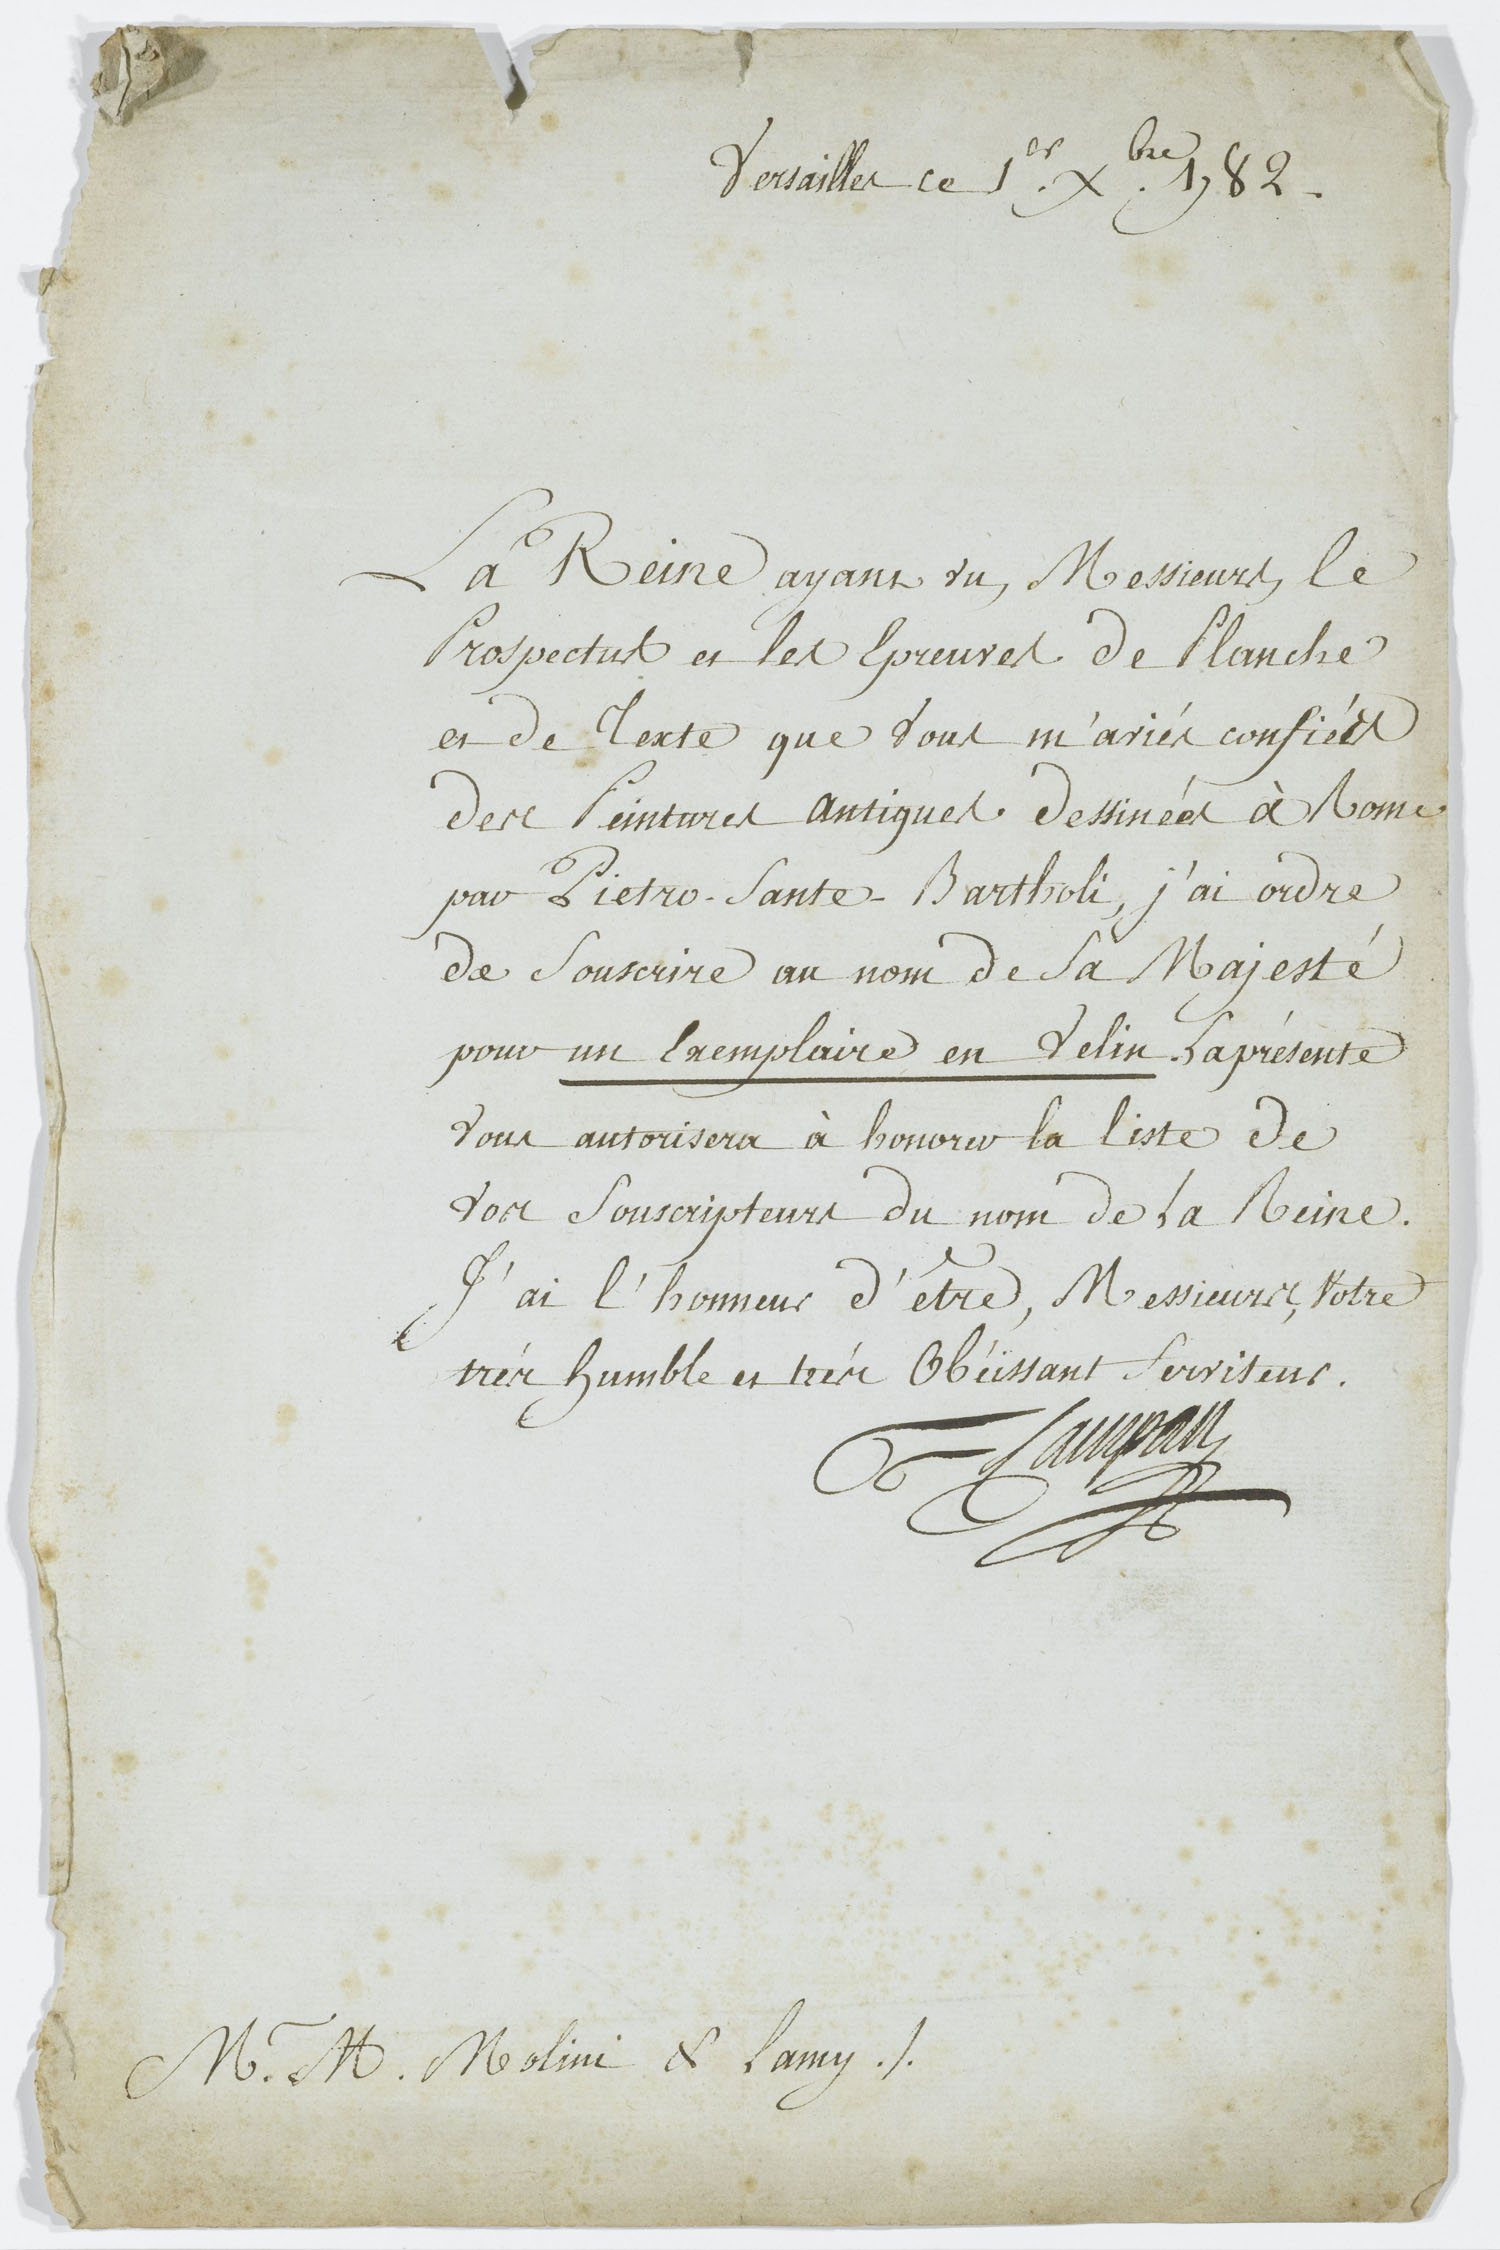 Versailles ce 1er. Xbre. 1782.
La Reine ayant vu, Messieurs, le
Prospectus et les Epreuves de Planche
et de Texte que vous m'aviés confiées
des Peintures antiques dessinées à Rome
par Pietro-Sante-Bartholi, j'ai ordre
de Souscrire au nom de Sa Majesté
pour un Exemplaire en Velin. La présente
vous autorisera à honorer la liste de
vos Souscripteurs du nom de La Reine.
J'ai l'honneur d'être, Messieurs, Votre
très humble et très Obéissant Serviteur.
Campan
Mr. M. Molini & Lamy ./.